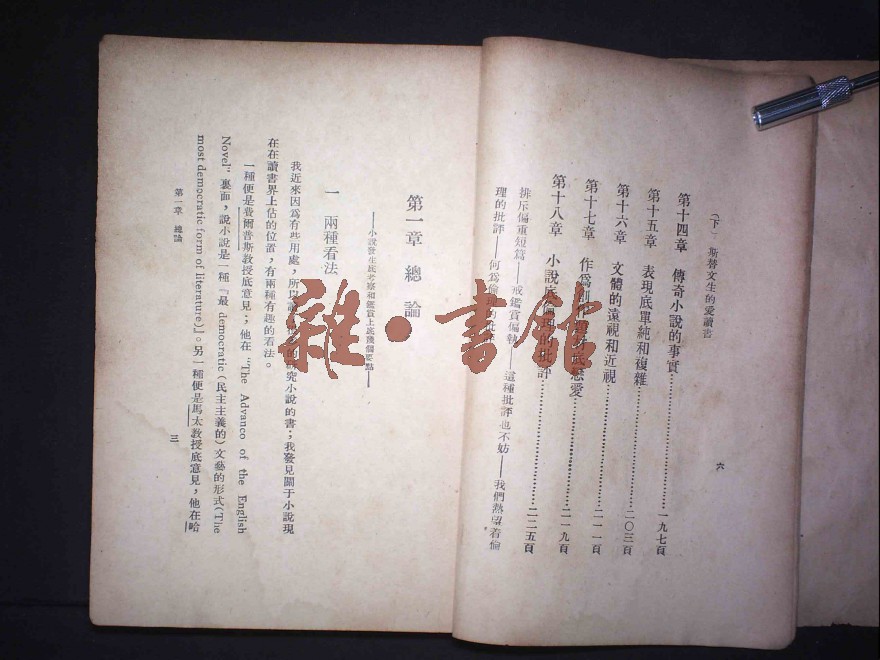 (下) 斯替文生的愛讀書
第十四章 傳奇小說的事實……一九七頁
第十五章 表現底單純和複雜
第十六章 文體的遠視和近視……二〇三頁
第十七章 作爲創作題材底戀愛……二一一頁
第十八章 小說底倫理的批評……二一九頁
……二二五頁
排斥偏重短篇——戒鑑賞偏執——這種批評也不妨——我們熱望着倫
理的批評——何爲倫理的批評
六
第一章 總論
——小說發生底考察和鑑賞上底幾個要點——
一 兩種看法
我近來因爲有些用處,所以 究小說的書;我發見關于小說現
在在讀書界上佔的位置,有兩種有趣的看法。
一種便是費爾普斯敎授底意見;他在 "The Advance of the English
Novel" 裏面,說小說是一種『最 democratic (民主主義的) 文藝的形式(The
most democratic form of literature)』。另一種便是馬太敎授底意見,他在哈
第一章 總論
三
雜·書館